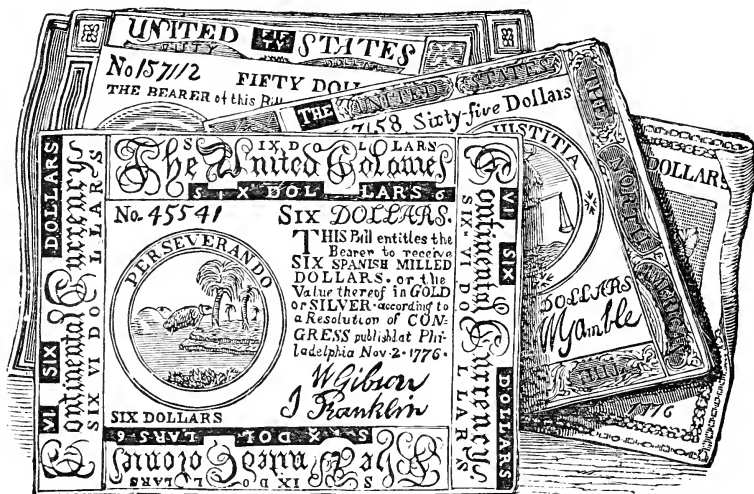 UNITED FIF TY STATES
No 157112 FIFTY DOL
THE BEARER of this Bill
THE UNITED STATES
7158 Sixty-five Dollars
THE NORTH AMERICAN
JUSTITIA
DOLLARS
WGamble
DOLLARS
1776
SIX DOLLARS
The United Colonies
SIX DOLLARS 6
No. 45541
SIX DOLLARS.
THIS Bill entitles the
Bearer to receive
SIX SPANISH MILLED
DOLLARS. or the
Value thereof in GOLD
or SILVER according to
a Resolution of CON-
GRESS publishd at Phi-
ladelphia Nov. 2. 1776.
WGibson
J Franklin
PERSEVERANDO
SIX DOLLARS
VI SIX DOLLARS
Continental Currency
SIX VI DOLLARS
VI SIX DOLLARS
Continental Currency.
SIX VI DOLLARS
SIX DOLLARS 6
The United Colonies
SIX DOLLARS